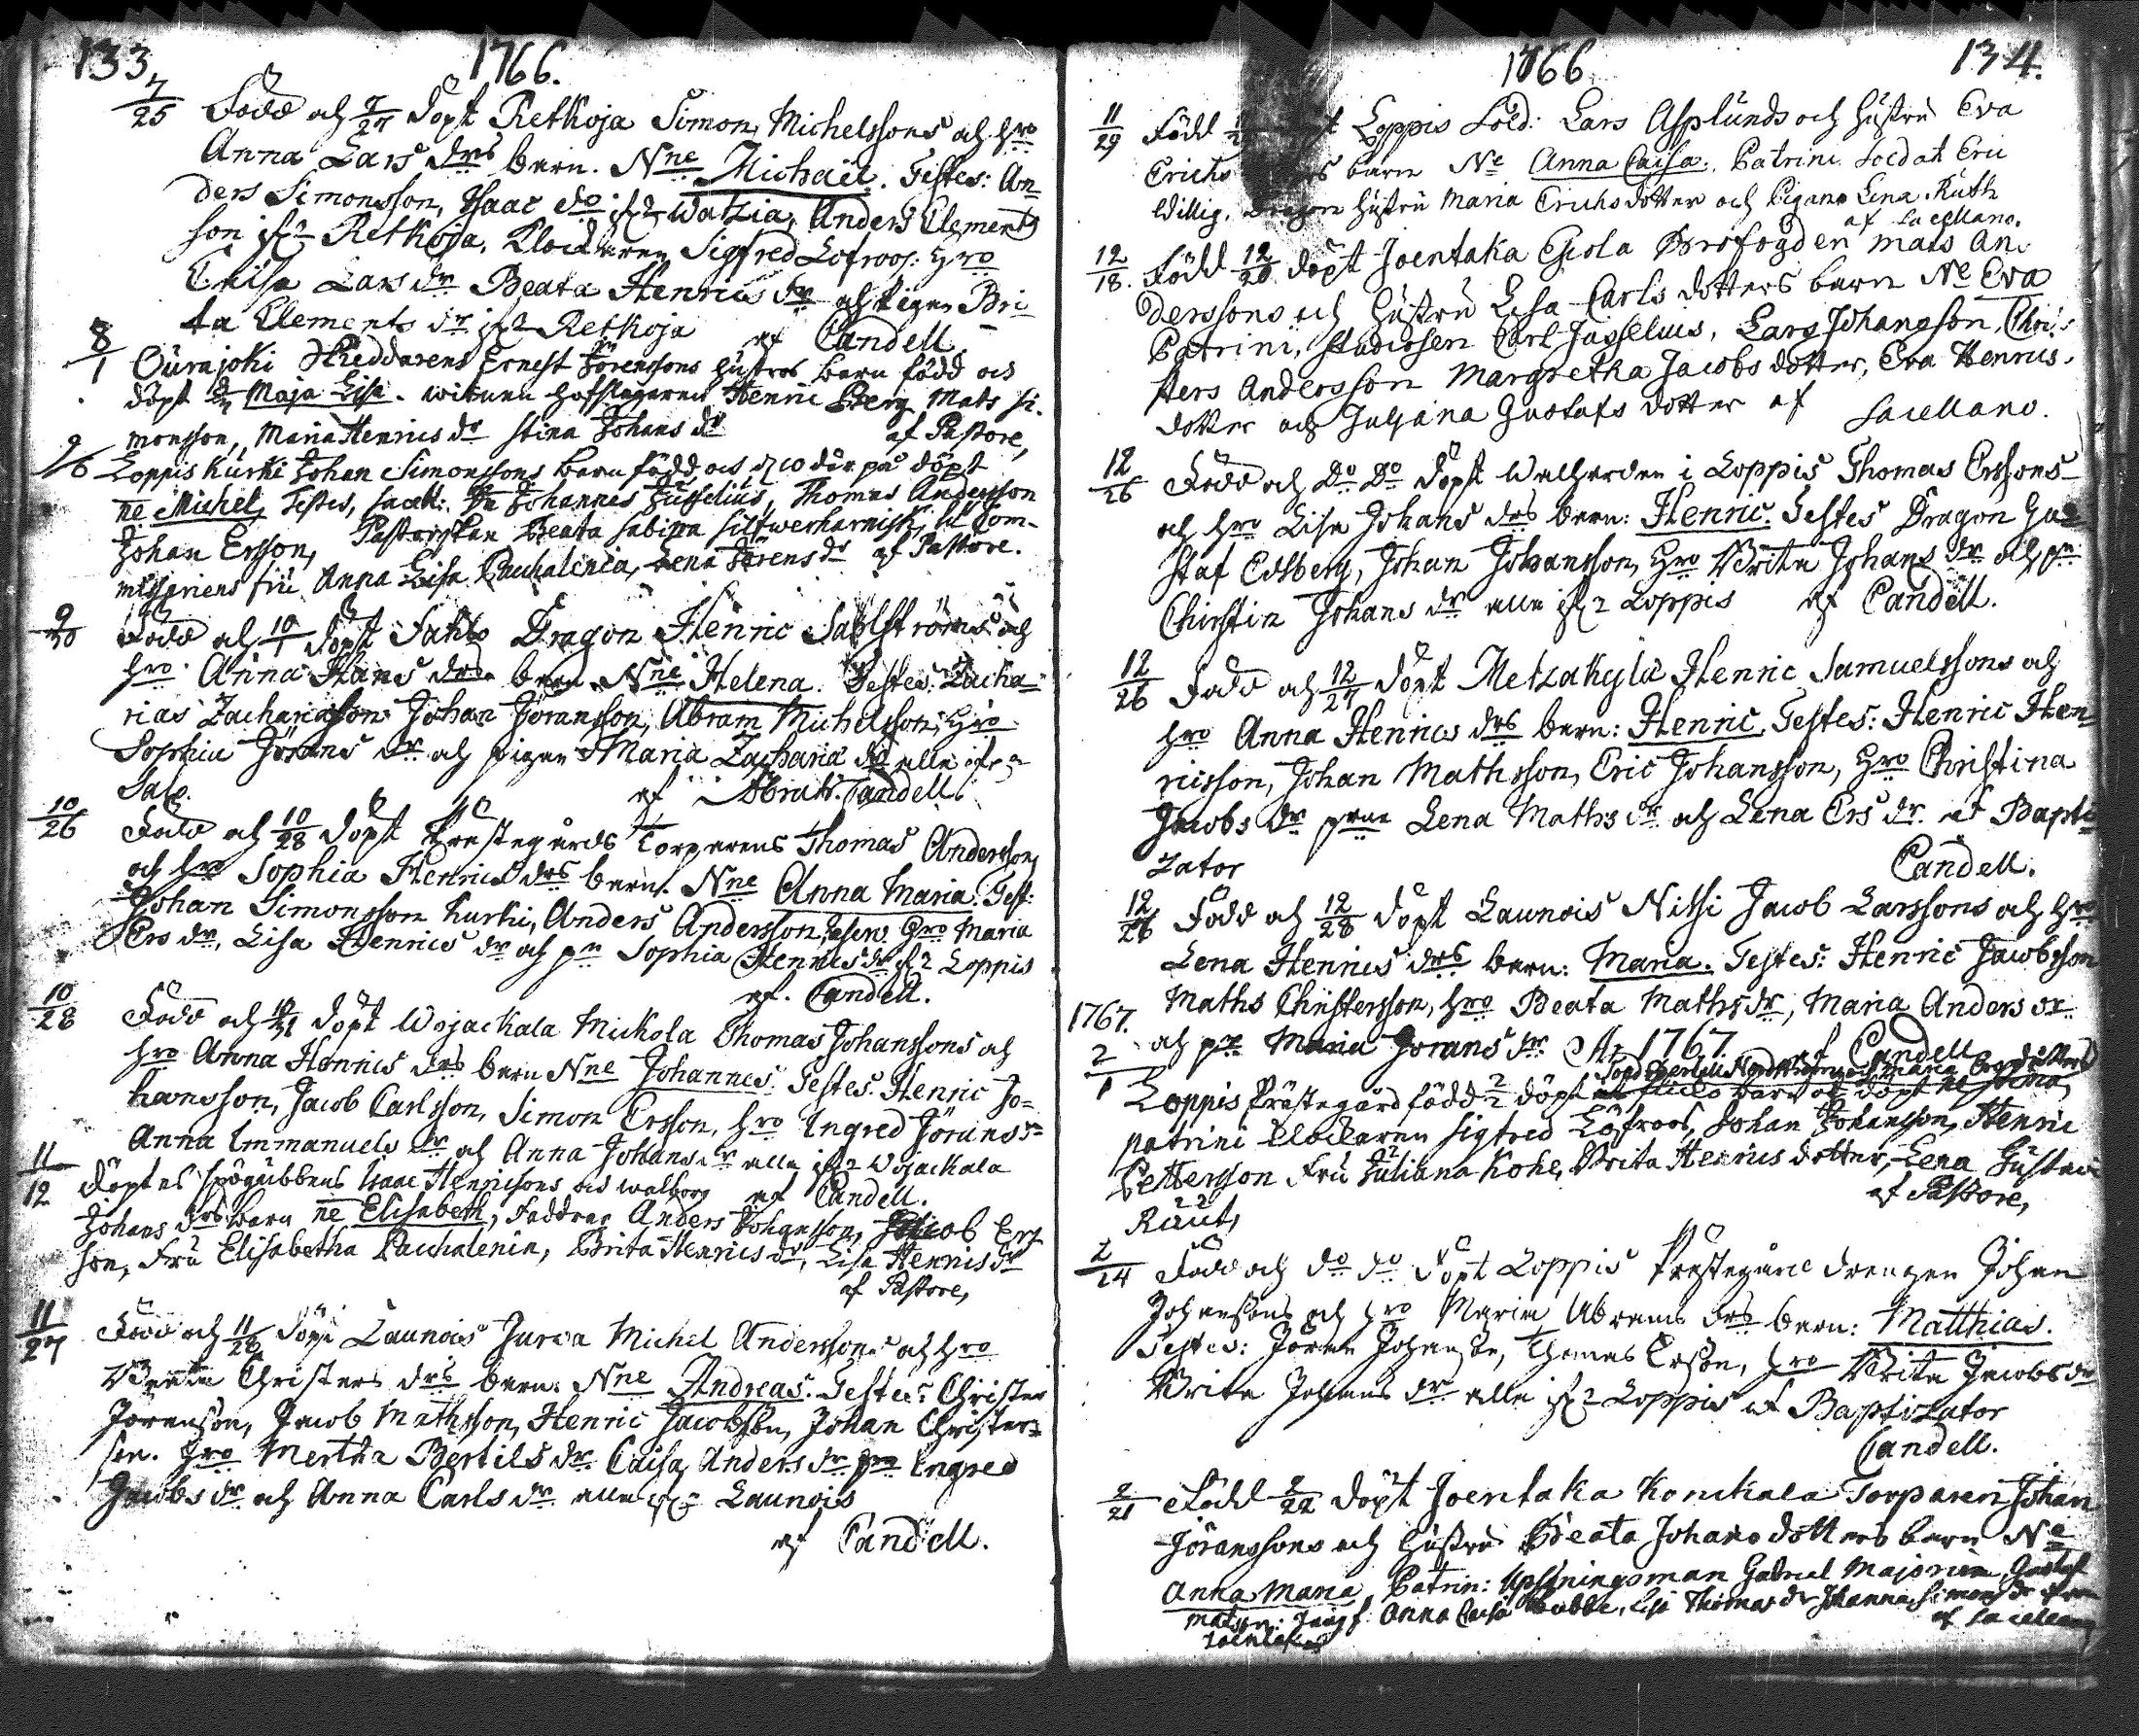 133
1766.
7/25 Född och 7/27 döpt Retkoja Simon Michelssons och hro
Anna Lars drs barn. Nne Michaël. Testes: An-
ders Simonsson, Isaac do ifr Watzia, Anders Clements
son ifr Retkoja, Klockaren Sigfred Löfroos: hro
Caisa Lars dr Beata Henrics dr och Pigan Bri-
ta Clements dr ifr Retkoja af Candell
8/1 Ourajoki Ernest Jörenssons hustros barn född och
döpt Maja Lisa. witnen hofslagaren Henric Berg Mats Si-
monsson, Maria Henrics dr Stina Johans dr af Pastore,
9/6 Loppis Kurki Johan Simonssons barn född och d 10 där på döpt
ne Michel, Testes, Sacell: Johannes Jusselius, Thomas Andersson
Johan Ersson, Pastorskan Beata Sabina Silfwerharnisk, Com-
missariens fru Anna Lisa Pachalenia, Lena Jörens dr af Pastore.
9/30 Född och 10/1 döpt Sahlo Dragon Henric Sahlströms och
hro. Anna Hans drs barn Nne Helena. Testes: Zacha-
rias Zachariasson Johan Jöransson, Abram Michelsson, Hro
Sophia Jörans dr och pigan Maria Zacharia dr alla ifr
Salo. af Abrah. Candell.
10/26 Född och 10/28 döpt Prästegårds Torparens Thomas Anderssons
och hro Sophia Henrics drs barn. Nne Anna Maria. Test:
Johan Simonsson Kurki, Anders Andersson, Hro Maria
Ers dr, Lisa Henrics dr och pn Sophia Henrics dr ifr Loppis
af. Candell.
10/28 Född och döpt Wojackala Mickola Thomas Johanssons och
hro Anna Henrics drs barn Nne Johannes. Testes. Henric Jo-
hansson, Jacob Carlsson, Simon Ersson, hro Ingred Jörans dr
Anna Immanuels dr och Anna Johans dr alla ifr Wojackala
af Candell.
11/12 döptes spögubbens Isaac Henricsons och walborg
Johans drs barn ne Elisabeth, faddrar Anders Johansson, Jacob Ers
son, Fru Elisabetha Pachalenia, Brita Henrics dr, Lisa Henrics dr
af Pastore,
11/27 Född och 11/28 döpt Launois Jurva Michel Anderssons och hro
Beata Christers drs barn: Nne Andreas. Testes: Christer
Jörensson, Jacob Mathsson, Henric Jacobsson, Johan Christers-
son. hro Mertha Bertils dr Caisa Anders dr pn Ingred
Jacobs dr och Anna Carls dr alla ifr Launois
af Candell.
1766
134.
11/29 Född döpt Loppis Sold: Lars Asplunds och hustru Eva
Erichs dotters barn Ne Anna Caisa. Patrini Soldat Eric
Willig, Dragon hustru Maria Erichsdotter och Pigan Lena Ruth
af Sacellano.
12/18. Född 12/20 döpt Joentaka Eskola Brofogden Mats An-
derssons och hustru Lisa Carls dotters barn Ne Eva
Patrini, Studiosen Carl Jusselius, Lars Johansson, Chri-
sters Andersson Margretha Jacobs dotter, Eva Henrics-
dotter och Juliana Gustafs dotter af Sacellano.
12/26 Född och Do Do döpt i Loppis Thomas Erssons
och hro Lisa Johans drs barn: Henric. Testes Dragon Gu-
staf Edsberg, Johan Johansson, hro Brita Johans dr och pn
Christin Johans dr alla ifr Loppis af Candell.
12/26 Född och 12/27 döpt Metzakylä Henric Samuelssons och
hro Anna Henrics drs barn: Henric, Testes: Henric Hen-
ricsson, Johan Mathsson, Eric Johansson, hro Christina
Jacobs dr Lena Maths dr och Lena Ers dr af Bapti-
zator Candell.
12/26 Född och 12/28 döpt Launois Nitsi Jacob Larssons och hro
Lena Henrics drs barn: Maria. Testes: Henric Jacobsson
Maths Christersson, hro Beata Maths dr, Maria Anders dr
och pn Maria Jörans dr af Candell
1767. Ao 1767
2/1 Loppis Prästegård född 2/2 döpt
patrini Klockaren Sigfred Löfroos, Johan Johansson, Henric
Pettersson Fru Juliana Kohe, Brita Henrics dotter, Lena Gustava
Ruut, af Pastore,
2/14 Född och do do döpt Loppis Prästegård drengen Johan
Johanssons och hro Maria Abrams drs barn: Matthias.
Testes: Jören Johansson, Thomas Ersson, hro Brita Jacobs dr
Brita Johans dr alla ifr Loppis af Baptizator
Candell.
2/21 Född 2/22 döpt Joentaka Konckala Torparen Johan
Jöranssons och hustru Beata Johans dotters barn Ne
Anna Maria Patrin: Upsyningsman Gabriel Majorin, Gustaf
Matsson Anna Caisa Lisa Thomas dr Johanna Simons dr
Joentaka af Sacellano